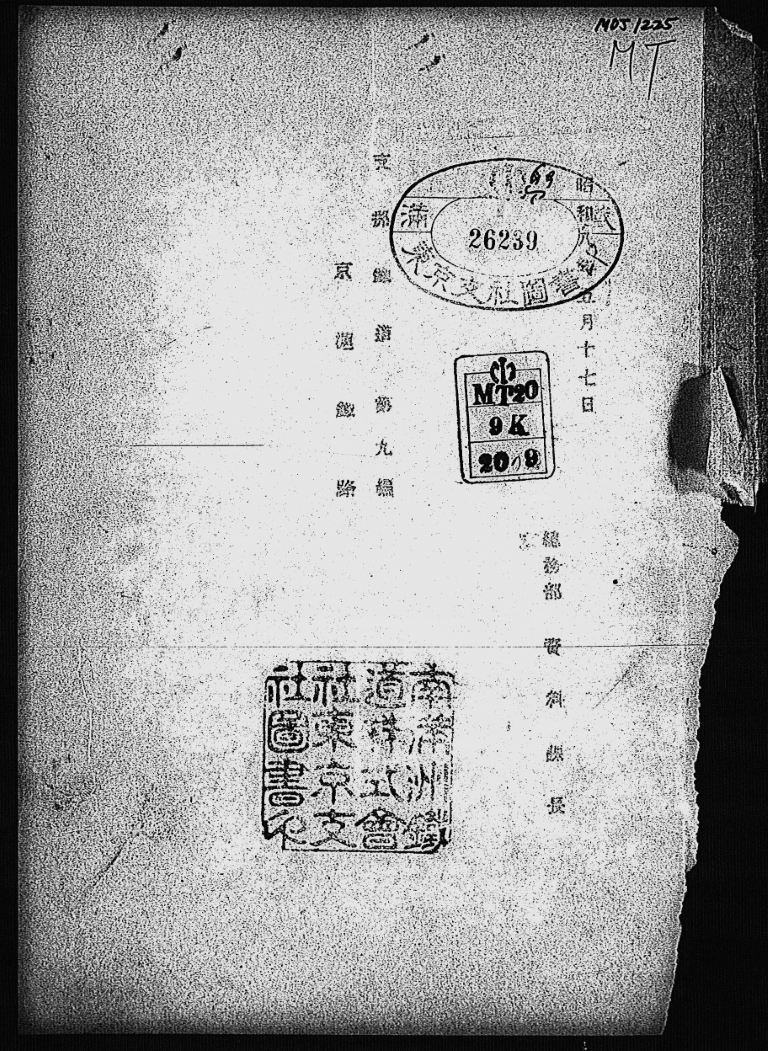 MOJ 1225
MT
昭和九年五月十七日
満鉄
26239
東京支社圖書
MT20
9K
20 9
總務部 資料課長
支那鐵道第九編
京滬鐵路
南満洲鐵
道株式會
社東京支
社圖書